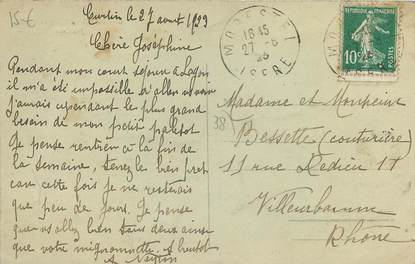 15€
Curtin le 27 aout 1923
Chère Joséphine
Pendant mon court séjour à Lagnin
il m'a été impossible d'aller vous voir
J'aurais cependant le plus grand
besoin de mon petit paletot
Je pense rentrer à la fin de
la semaine, tenez le bien pret
car cette fois je ne resterais
que peu de jours. Je pense
que vs allez bien tous deux ainsi
que votre mignonnette. A bientot
MORESTEL
18 45
27 - 8
23
ISERE
10c
POSTES
Madame et Monsieur
Bessette (couturière)
11 rue Dedieu 11
Villeurbanne
Rhône
38